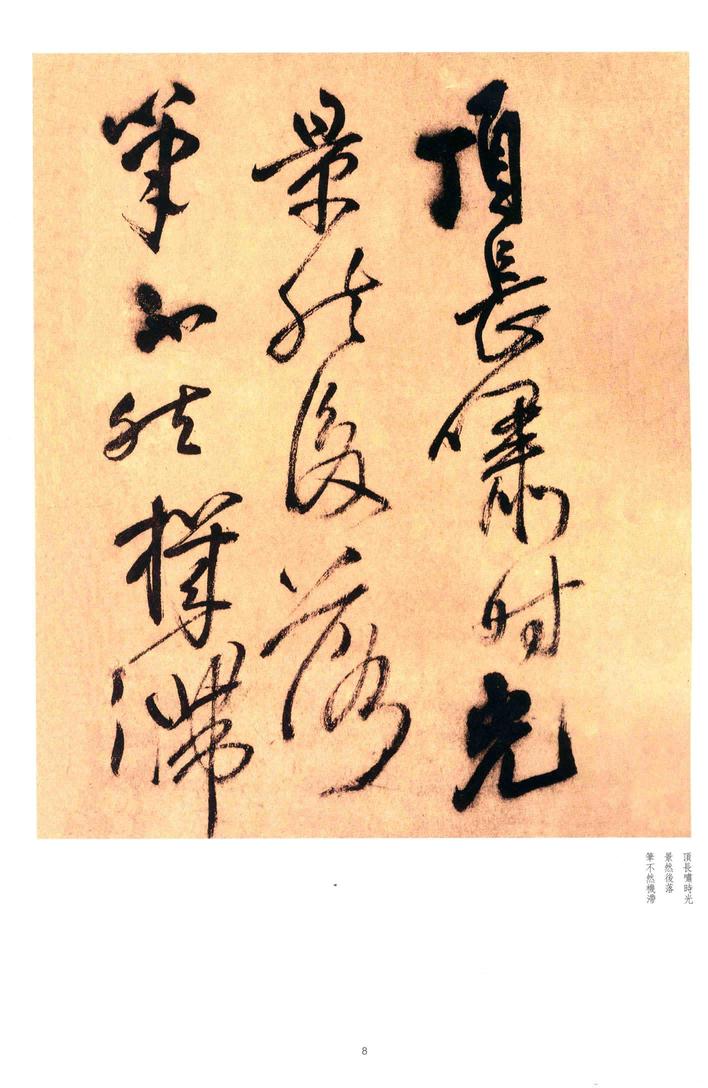 頂長嘯时光
景然後落
筆不然機滯
頂長嘯時光
景然後落
筆不然機滯
8